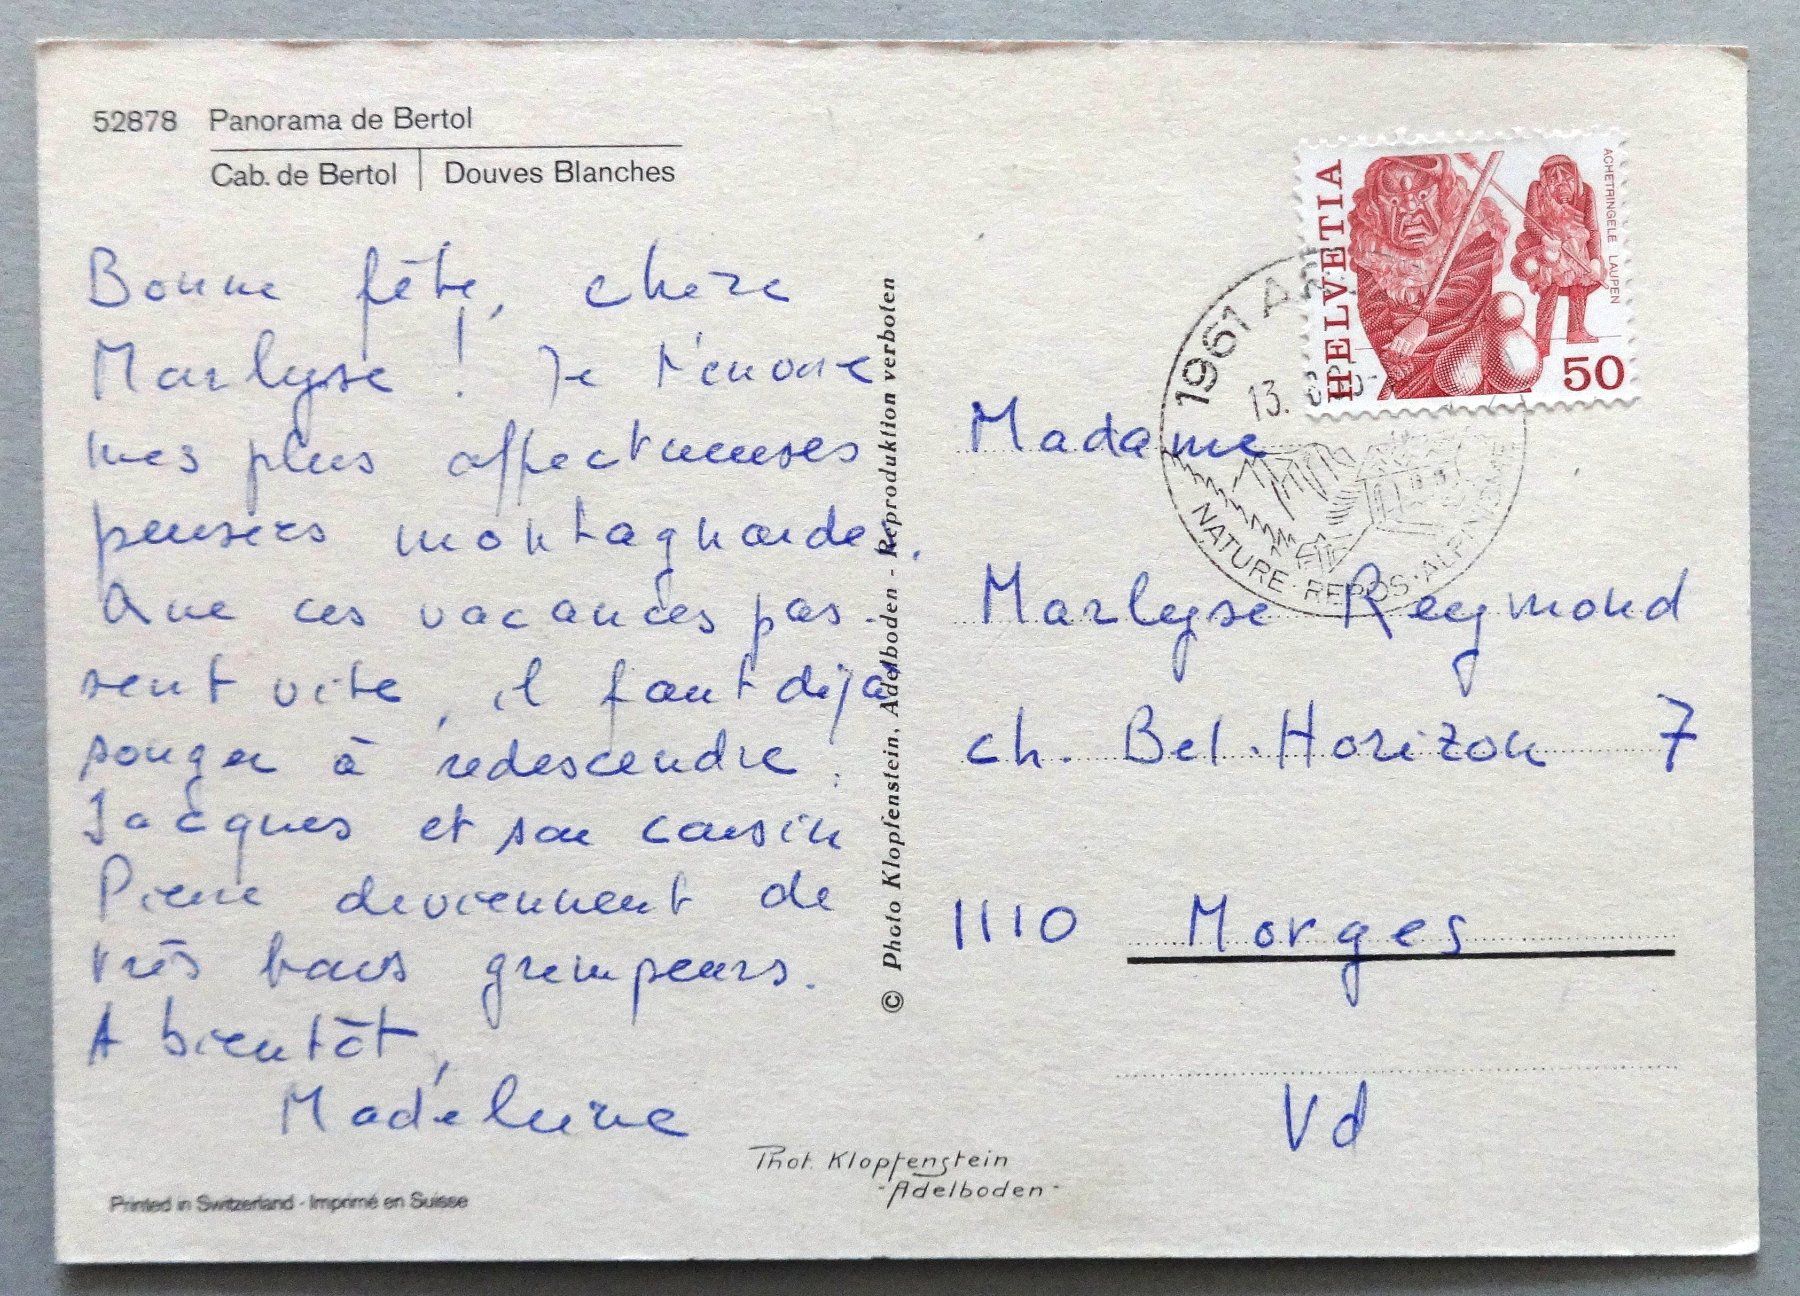 52878 Panorama de Bertol
Cab. de Bertol | Douves Blanches
Bonne fête, chère
Marlyse ! Je t'envoie
mes plus affectueuses
pensers montagnardes.
Que ces vacances pas-
sent vite, il faut déjà
songer à redescendre.
Jacques et son cousin
Pierre deviennent de
très bons grimpeurs.
A bientôt,
Madeleine
Printed in Switzerland - Imprimé en Suisse
© Photo Klopfenstein, Adelboden - Reproduktion verboten
Phot. Klopfenstein
- Adelboden -
HELVETIA
ACHETRINGELE LAUPEN
50
1961
13.
NATURE · REPOS · ALPINISME
Madame
Marlyse Reymond
ch. Bel-Horizon 7
1110 Morges
Vd